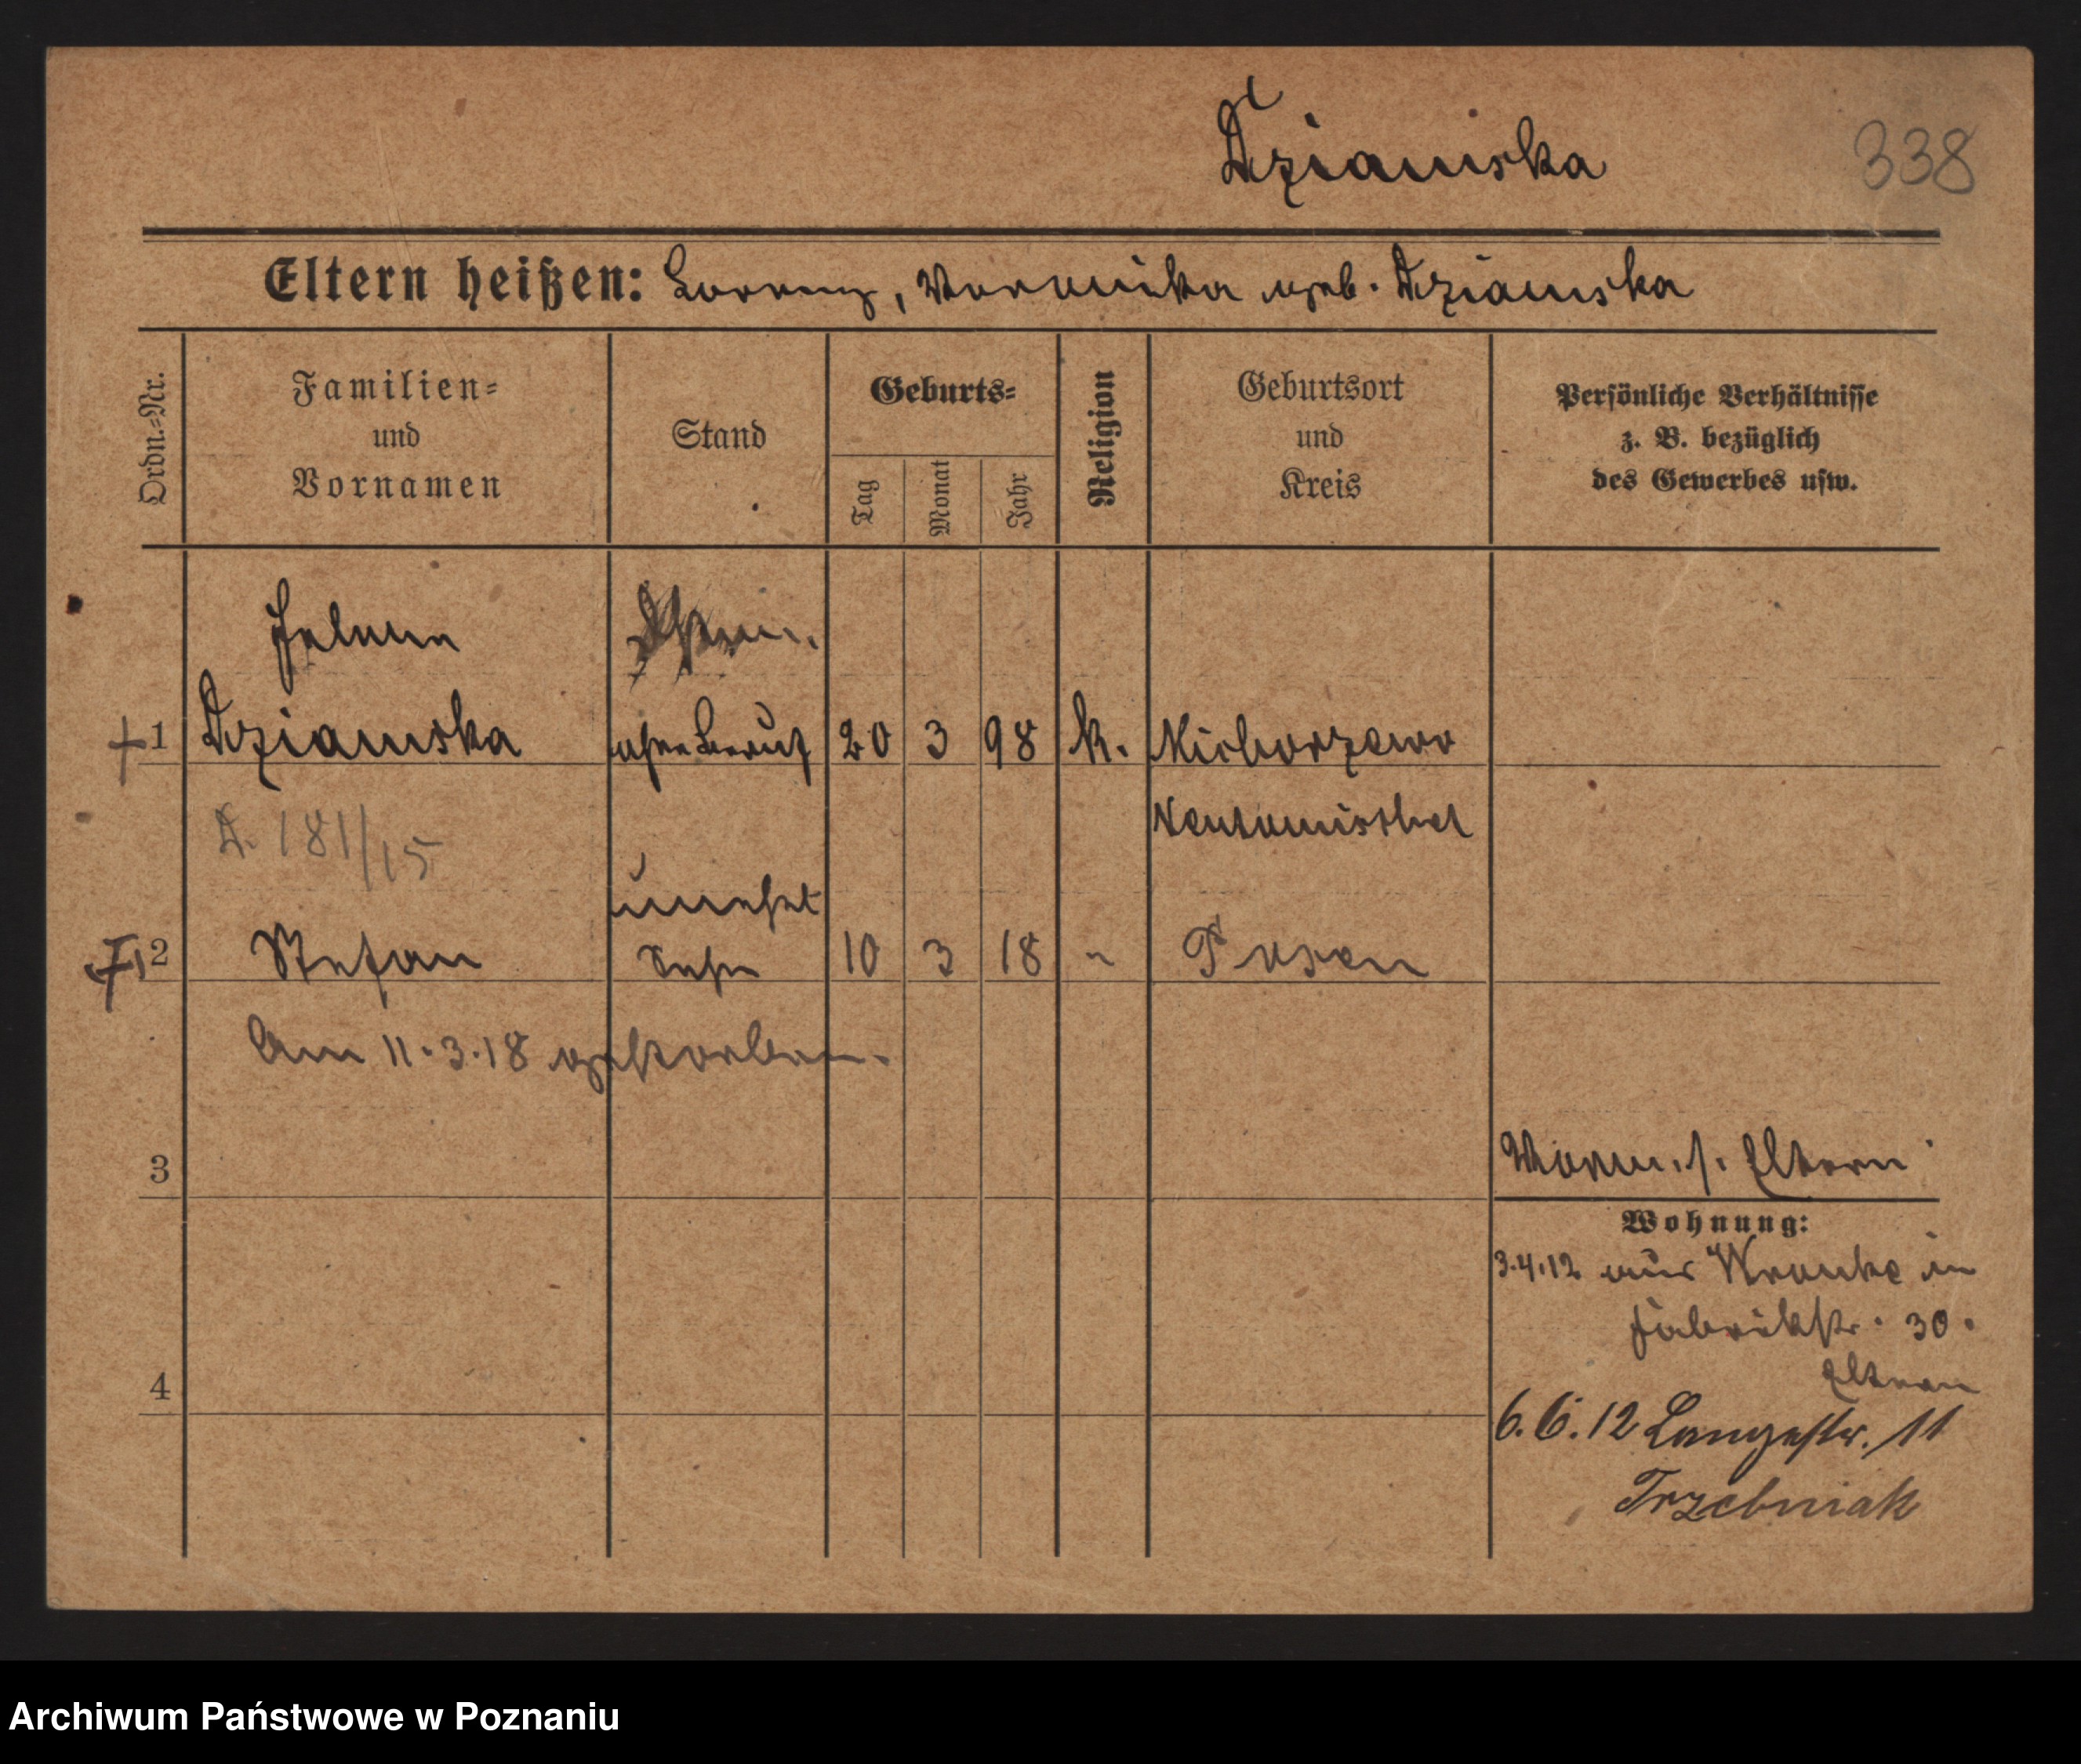 Dziamska
338
Eltern heißen: Lorenz, Veronika geb. Dziamska
Ordn.-Nr.
Familien-
und
Vornamen
Stand
Geburts-
Tag
Monat
Jahr
Religion
Geburtsort
und
Kreis
Persönliche Verhältnisse
z. B. bezüglich
des Gewerbes usw.
Helena
1 Dziamska ohne Beruf 20 3 98 k. Michorzewo
A. 181/15
Neutomischel
unehel
2 Stefan Sohn 10 3 18 " Posen
Am 11.3.18 gestorben.
3
Eltern
Wohnung:
3.4.12 aus Wronke in
Fabrikstr. 30.
Eltern
4
6.6.12 Langestr. 11
Trzebniak
Archiwum Państwowe w Poznaniu